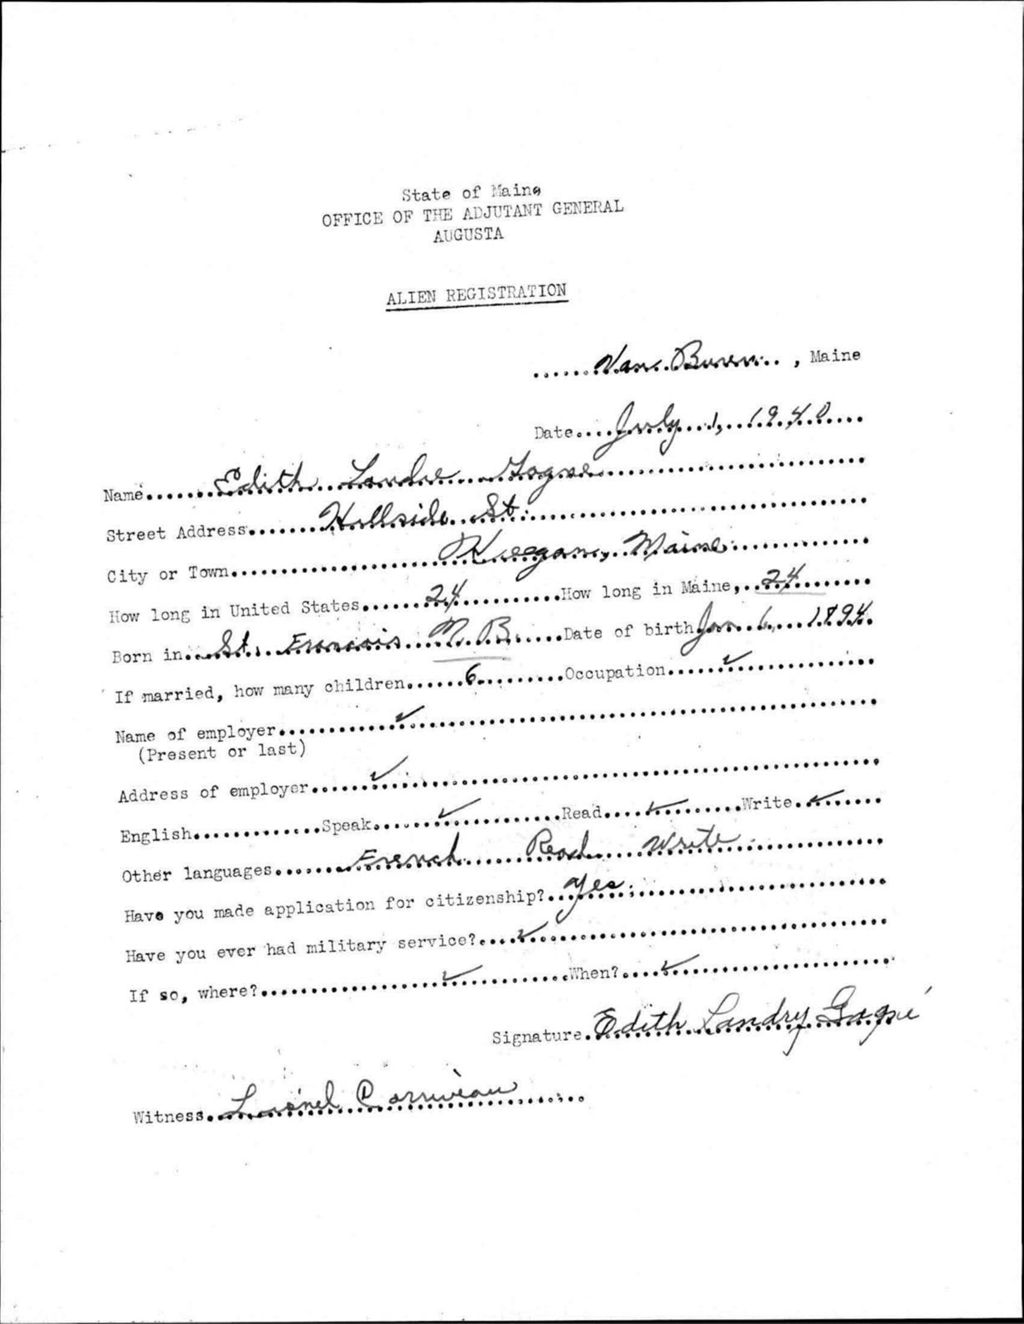 State of Maine
OFFICE OF THE ADJUTANT GENERAL
AUGUSTA
ALIEN REGISTRATION
......Van Buren.. , Maine
Date....July 1, 1940....
Name......Edith Landre Gagne......
Street Address......Hillside St.......
City or Town......Keegan, Maine......
How long in United States......24......How long in Maine,...24......
Born in...St. Francis N.B......Date of birth Jan 6, 1894.
If married, how many children......6......Occupation.....✓......
Name of employer......✓......
(Present or last)
Address of employer......✓......
English............Speak......✓......Read....✓......Write..✓......
Other languages......French Read Write......
Have you made application for citizenship?..Yes......
Have you ever had military service?....✓......
If so, where?......✓......When?....✓......
Signature.Edith Landry Gagné
Witness.Lionel Corriveau......